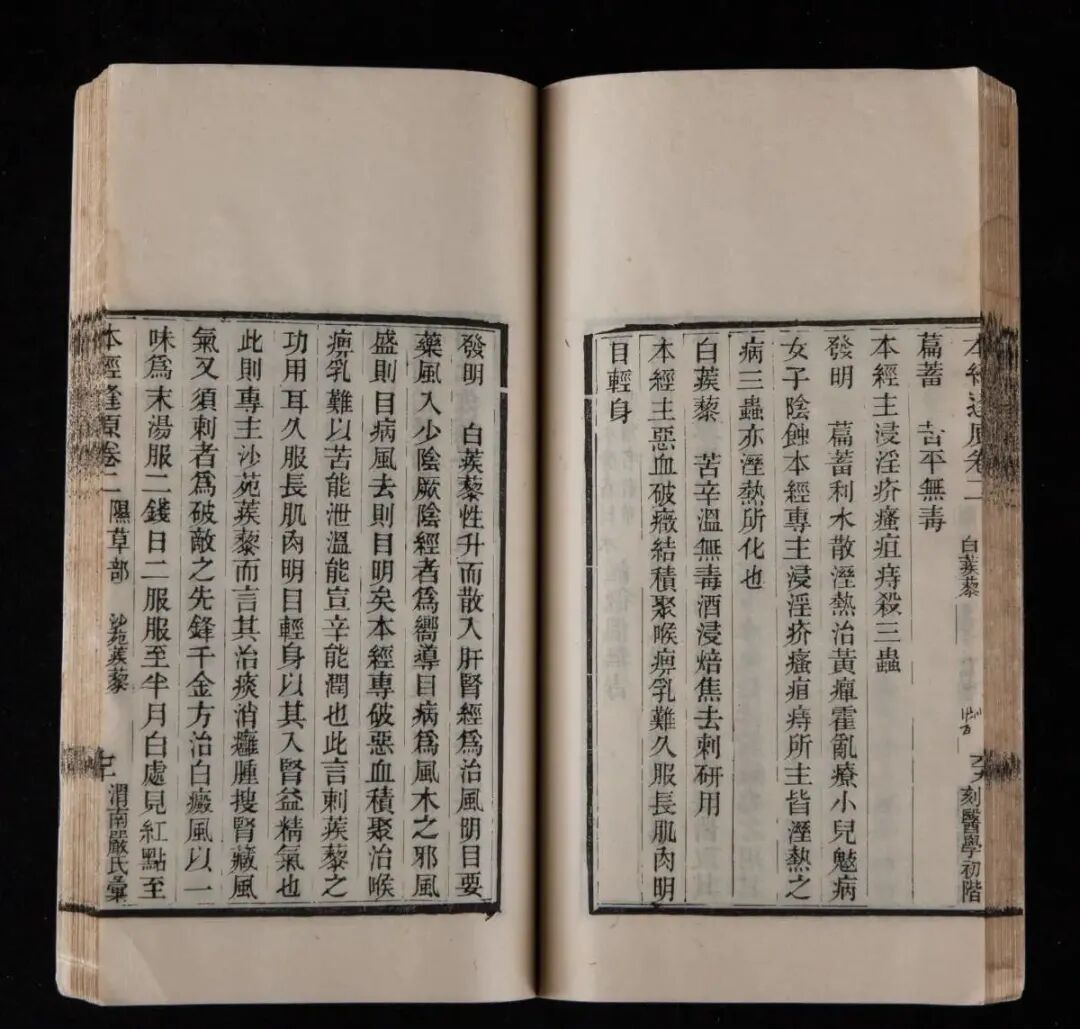 本經逢原卷二 白蒺藜 刻醫學初階
萹蓄 苦平無毒
本經主浸淫疥瘙疽痔殺三蟲
發明 萹蓄利水散溼熱治黃癉霍亂療小兒魃病
女子陰蝕本經專主浸淫疥瘙疽痔所主皆溼熱之
病三蟲亦溼熱所化也
白蒺藜 苦辛溫無毒酒浸焙焦去刺研用
本經主惡血破癥結積聚喉痹乳難久服長肌肉明
目輕身
發明 白蒺藜性升而散入肝腎經爲治風明目要
藥風入少陰厥陰經者爲嚮導目病爲風木之邪風
盛則目病風去則目明矣本經專破惡血積聚治喉
痹乳難以苦能泄溫能宣辛能潤也此言刺蒺藜之
功用耳久服長肌肉明目輕身以其入腎益精氣也
此則專主沙苑蒺藜而言其治痰消癰腫搜腎藏風
氣又須刺者爲破敵之先鋒千金方治白癜風以一
味爲末湯服二錢日二服服至半月白處見紅點至
本經逢原卷二 隰草部 沙苑蒺藜 渭南嚴氏彙